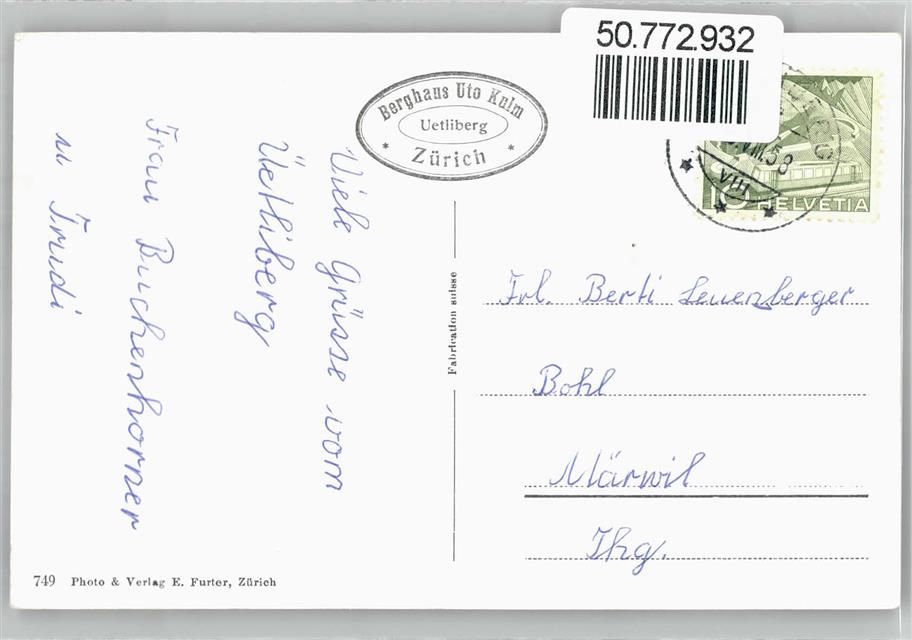 50.772.932
Berghaus Uto Kulm
Uetliberg
* Zürich *
VIII.58
VIII
10 HELVETIA
Viele Grüsse vom
Üetliberg
Frau Buchenhorner
u. Trudi
Fabrication suisse
Frl. Berti Leuenberger
Bohl
Märwil
Thg.
749 Photo & Verlag E. Furter, Zürich